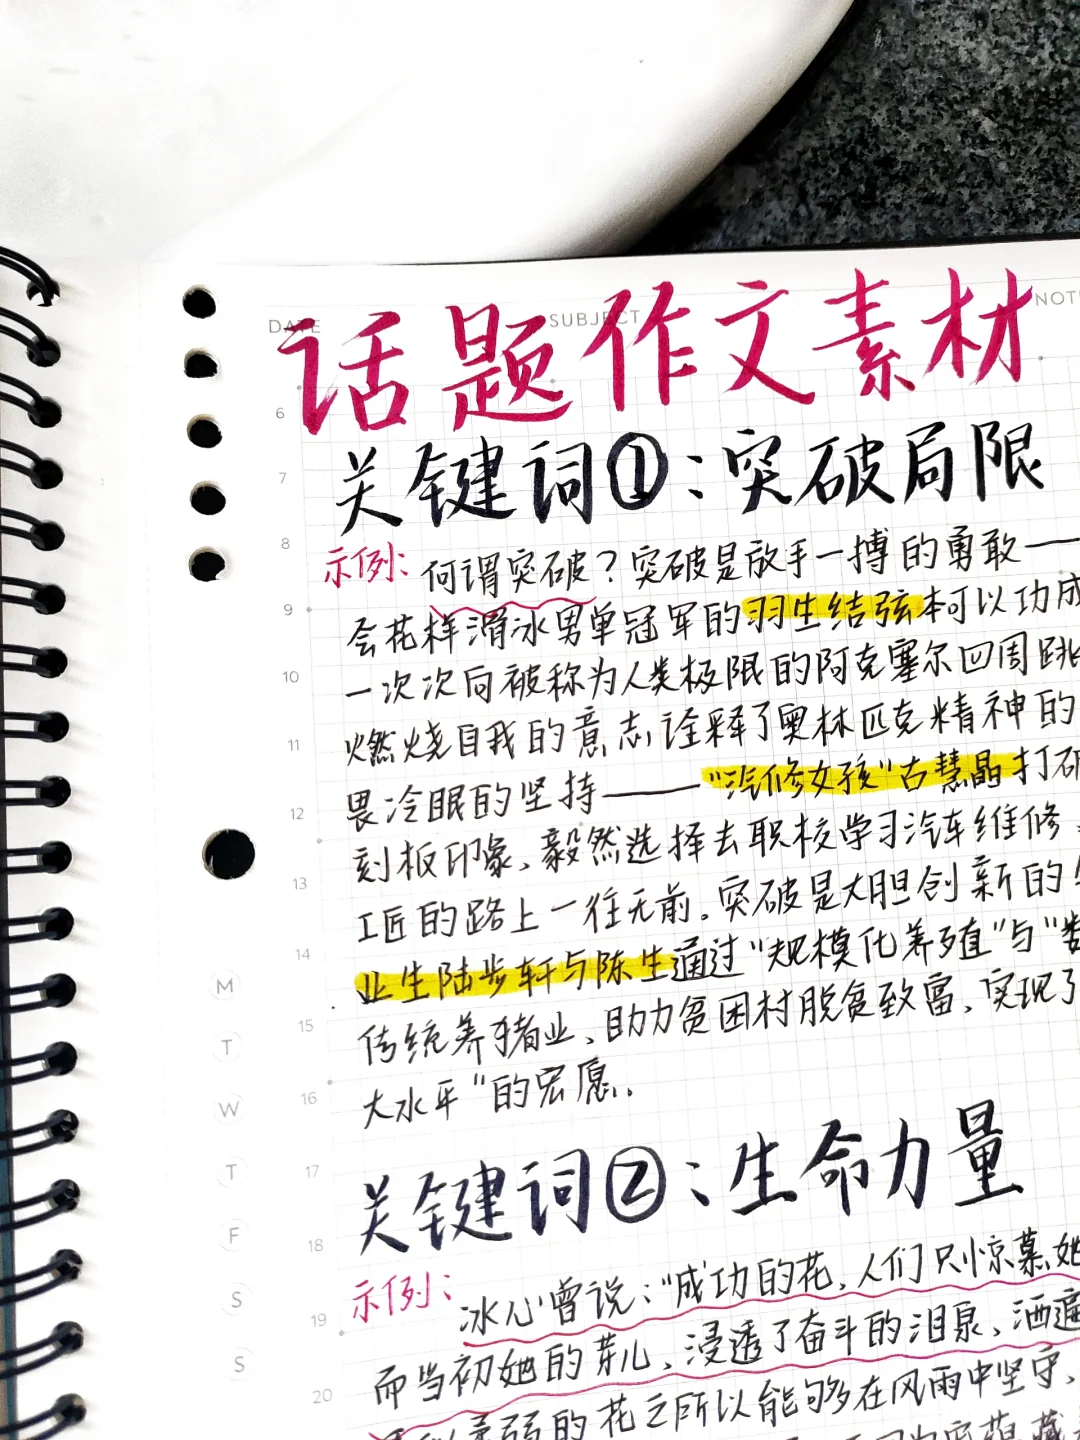 DATE
SUBJECT
话题作文素材
关键词①：突破局限
示例：何谓突破？突破是放手一搏的勇敢——
会花样滑冰男单冠军的羽生结弦本可以功成
一次次向被称为人类极限的阿克塞尔四周跳
燃烧自我的意志诠释了奥林匹克精神的
畏冷眼的坚持——“汽修女孩”古慧晶打破
刻板印象、毅然选择去职校学习汽车维修、
工匠的路上一往无前。突破是大胆创新的
业生陆步轩与陈生通过“规模化养殖”与“
传统养猪业、助力贫困村脱贫致富，实现了
大水平”的宏愿。
关键词②：生命力量
示例：冰心曾说：“成功的花，人们只惊慕她
而当初她的芽儿、浸透了奋斗的泪泉、洒遍
柔弱的花之所以能够在风雨中坚守、
6
7
8
9
10
11
12
13
14
15
16
17
18
19
20
M
T
W
T
F
S
S